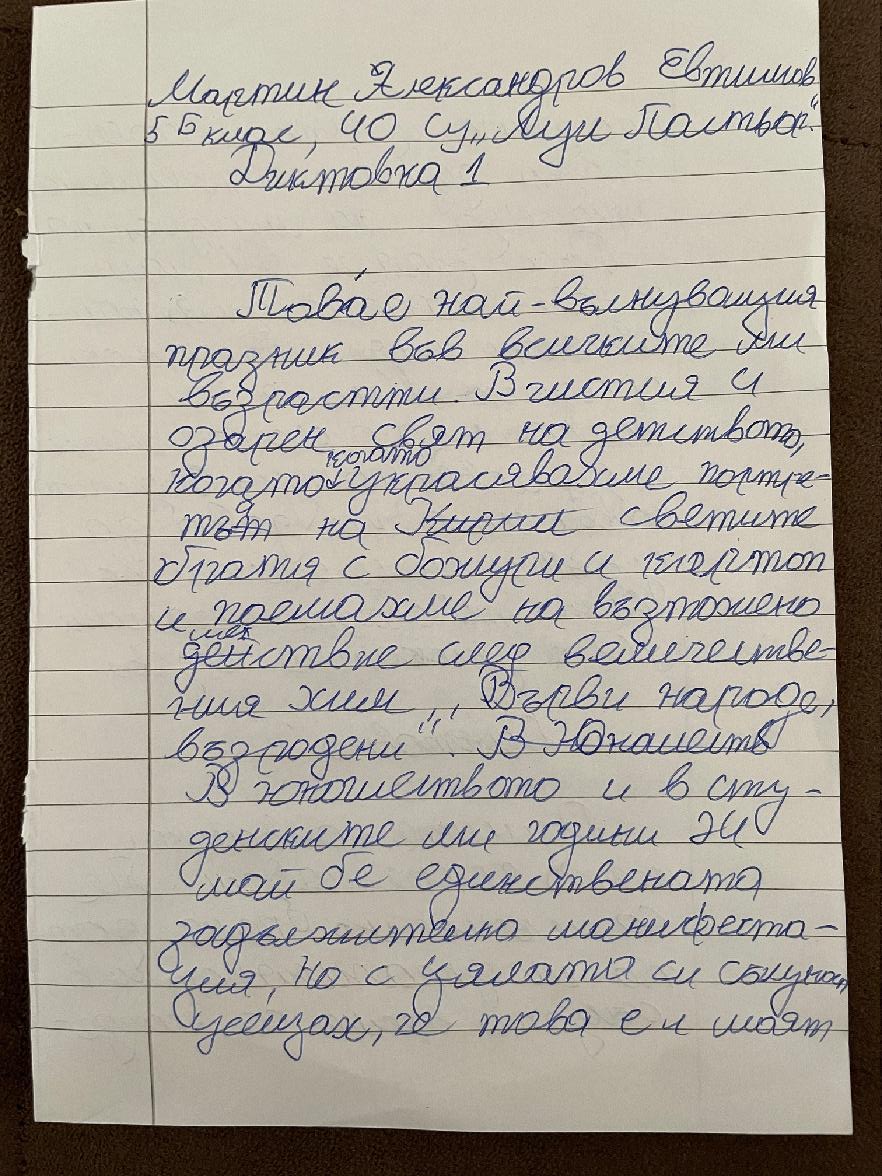 Мартин Александров Евтимов
5 Б клас, ЧО СУ „Луи Пастьор“
Диктовка 1
Това е най-вълнуващия
празник във всичките ми
възрастти. В чистия и
озарен свят на детството,
когато
когато украсявахме портре-
тът на Кирил светите
братя с божури и
и поемахме на възтожено
мек
действие след величестве-
ния хим „Върви народе,
възродени“. В Юношеств
В юношеството и в сту-
денските ми години 24
май бе единствената
задължително манифеста-
ция, но с цялата си същност
усещах, че това е и моят